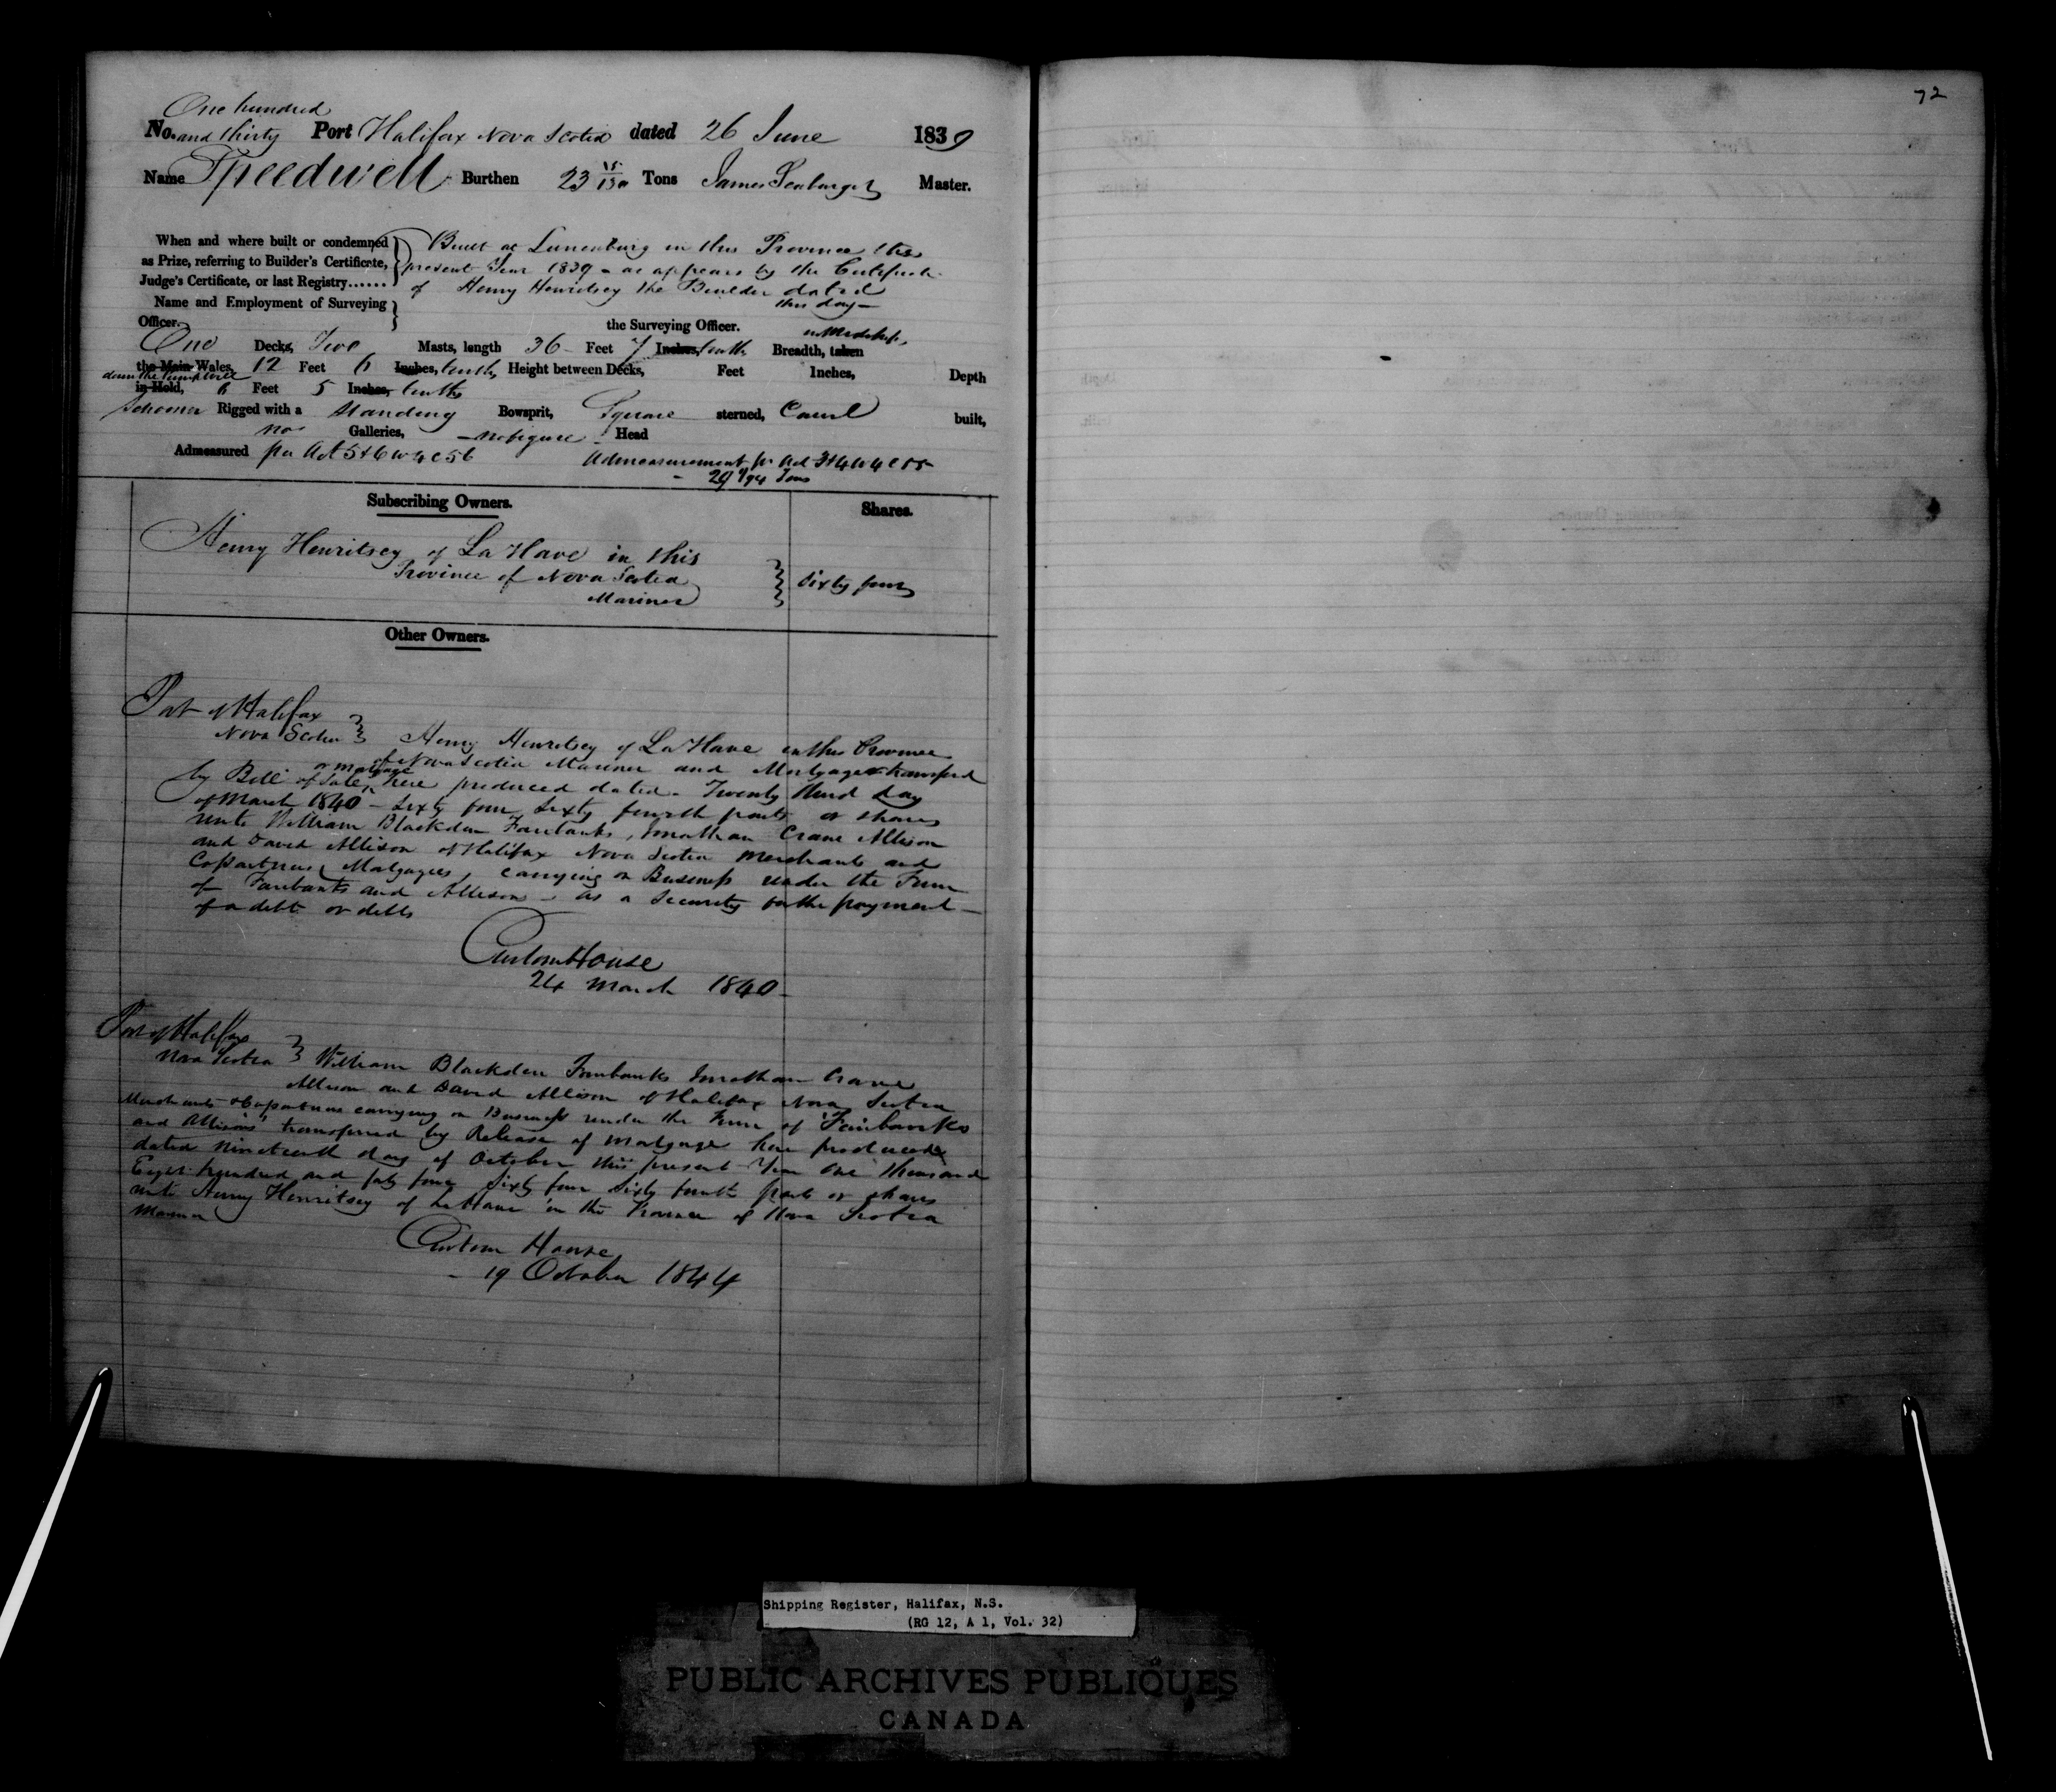 One hundred
No. and thirty Port Halifax Nova Scotia dated 26 June 1839
Name Speedwell Burthen 23 Tons James Master.
When and where built or condemned
as Prize, referring to Builder's Certificate,
Judge's Certificate, or last Registry......
Built at Lunenburg in this Province this
present Year 1839 - as appears by the Certificate
of Henry Henritsey the Builder dated
this day -
Name and Employment of Surveying
Officer. the Surveying Officer.
One Decks, Two Masts, length 36 Feet 7 Inches, tenths Breadth, taken in Midships,
the Main Wales, 12 Feet 6 Inches, tenths, Height between Decks, Feet Inches, Depth
in Hold, 6 Feet 5 Inches, tenths
Schooner Rigged with a Standing Bowsprit, Square sterned, Carvel built,
no Galleries, - no figure - Head
Admeasured per Act 5 & 6 W 4 C 56 Admeasurement pr Act 3 & 4 W 4 C 55
- 29 1/94 Tons
Subscribing Owners. Shares.
Henry Henritsey of La Have in this
Province of Nova Scotia
Mariner
Sixty four
Other Owners.
Port of Halifax
Nova Scotia Henry Henritsey of La Have in this Province
of Nova Scotia Mariner and Mortgager transferred
by Bill of Sale or mortgage here produced dated - Twenty third day
of March 1840 - Sixty four Sixty fourth parts or shares
unto William Blackden Fairbanks, Jonathan Crane Allison
and David Allison of Halifax Nova Scotia Merchants and
Copartners Mortgagees, carrying on Business under the Firm
of Fairbanks and Allison - as a Security for the payment -
of a debt or debts
Custom House
24 March 1840 -
Port of Halifax
Nova Scotia William Blackden Fairbanks Jonathan Crane
Allison and David Allison of Halifax Nova Scotia
Merchants & Copartners carrying on Business under the Firm of Fairbanks
and Allisons, transferred by Release of mortgage here produced
dated nineteenth day of October this present Year One thousand
Eight hundred and forty four Sixty four Sixty fourth parts or shares
unto Henry Henritsey of La Have in the Province of Nova Scotia
Mariner
Custom House
- 19 October 1844
72
Shipping Register, Halifax, N.S.
(RG 12, A 1, Vol. 32)
PUBLIC ARCHIVES PUBLIQUES
CANADA